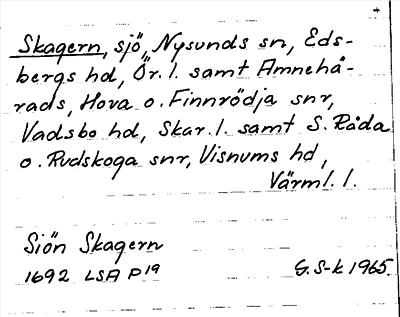 Skagern, sjö, Nysunds sn, Eds-
bergs hd, Ör. l. samt Amnehå-
rads, Hova o. Finnrödja snr,
Vadsbo hd, Skar. l. samt S. Råda
o. Rudskoga snr, Visnums hd,
Värml. l.
Siön Skagern
1692 LSA P19
G. S-k 1965